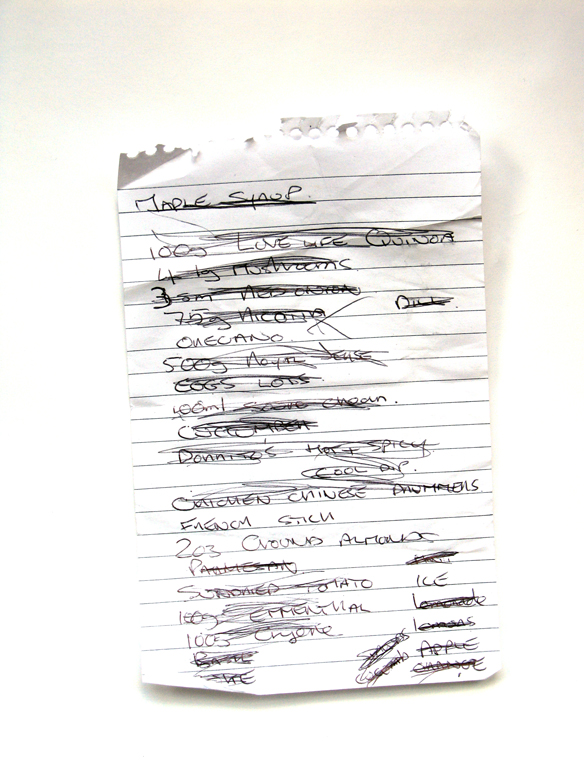 MAPLE SYRUP.
100g LOVE LIFE QUINOA
4 lg MUSHROOMS
3 sm RED ONION
75g RICOTTA
DILL
OREGANO.
500g ROYAL
EGGS LOTS
400ml SOURE CREAM.
CUCUMBER
DORRITO'S HOT + SPICY
COOL DIP.
CHICKEN CHINESE
FRENCH STICK
203 GROUND ALMONDS
PARMESAN
SUNDRIED TOMATO
ICE
100g EMMENTHAL
Lemonade
100g Gruyere
lemons
BASIL
APPLE
ORANGE